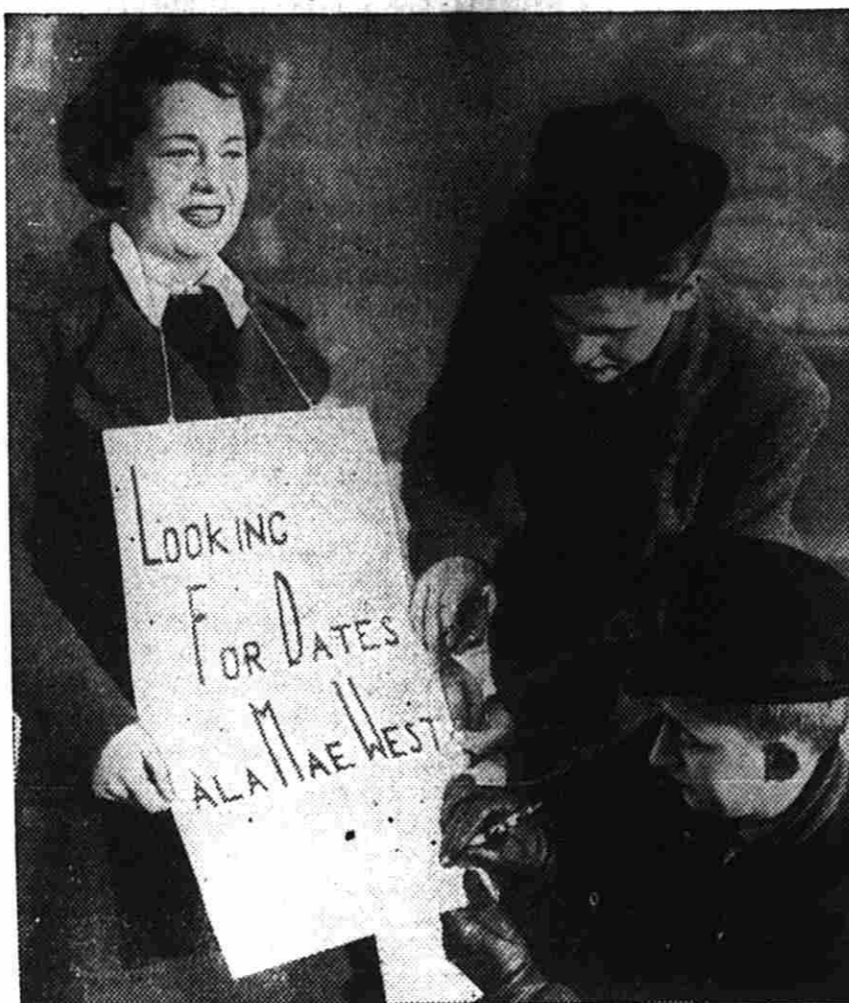 LOOKING
FOR DATES
ALA MAE WEST